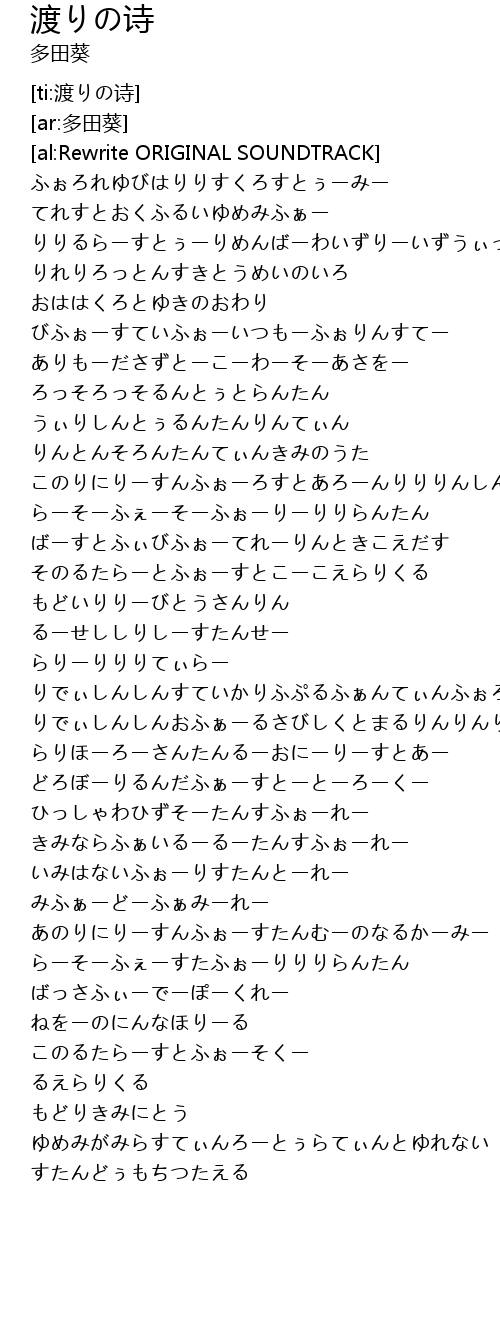 渡りの诗
多田葵
[ti:渡りの诗]
[ar:多田葵]
[al:Rewrite ORIGINAL SOUNDTRACK]
ふぉろれゆびはりりすくろすとぅーみー
てれすとおくふるいゆめみふぁー
りりるらーすとぅーりめんばーわいずりーいずうぃっ
りれりろっとんすきとうめいのいろ
おははくろとゆきのおわり
びふぉーすていふぉーいつもーふぉりんすてー
ありもーださずとーこーわーそーあさをー
ろっそろっそるんとぅとらんたん
うぃりしんとぅるんたんりんてぃん
りんとんそろんたんてぃんきみのうた
このりにりーすんふぉーろすとあろーんりりりんしん
らーそーふぇーそーふぉーりーりりらんたん
ばーすとふぃびふぉーてれーりんときこえだす
そのるたらーとふぉーすとこーこえらりくる
もどいりりーびとうさんりん
るーせししりしーすたんせー
らりーりりりてぃらー
りでぃしんしんすていかりふぷるふぁんてぃんふぉろ
りでぃしんしんおふぁーるさびしくとまるりんりんり
らりほーろーさんたんるーおにーりーすとあー
どろぼーりるんだふぁーすとーとーろーくー
ひっしゃわひずそーたんすふぉーれー
きみならふぁいるーるーたんすふぉーれー
いみはないふぉーりすたんとーれー
みふぁーどーふぁみーれー
あのりにりーすんふぉーすたんむーのなるかーみー
らーそーふぇーすたふぉーりりりらんたん
ばっさふぃーでーぽーくれー
ねをーのにんなほりーる
このるたらーすとふぉーそくー
るえらりくる
もどりきみにとう
ゆめみがみらすてぃんろーとぅらてぃんとゆれない
すたんどぅもちつたえる